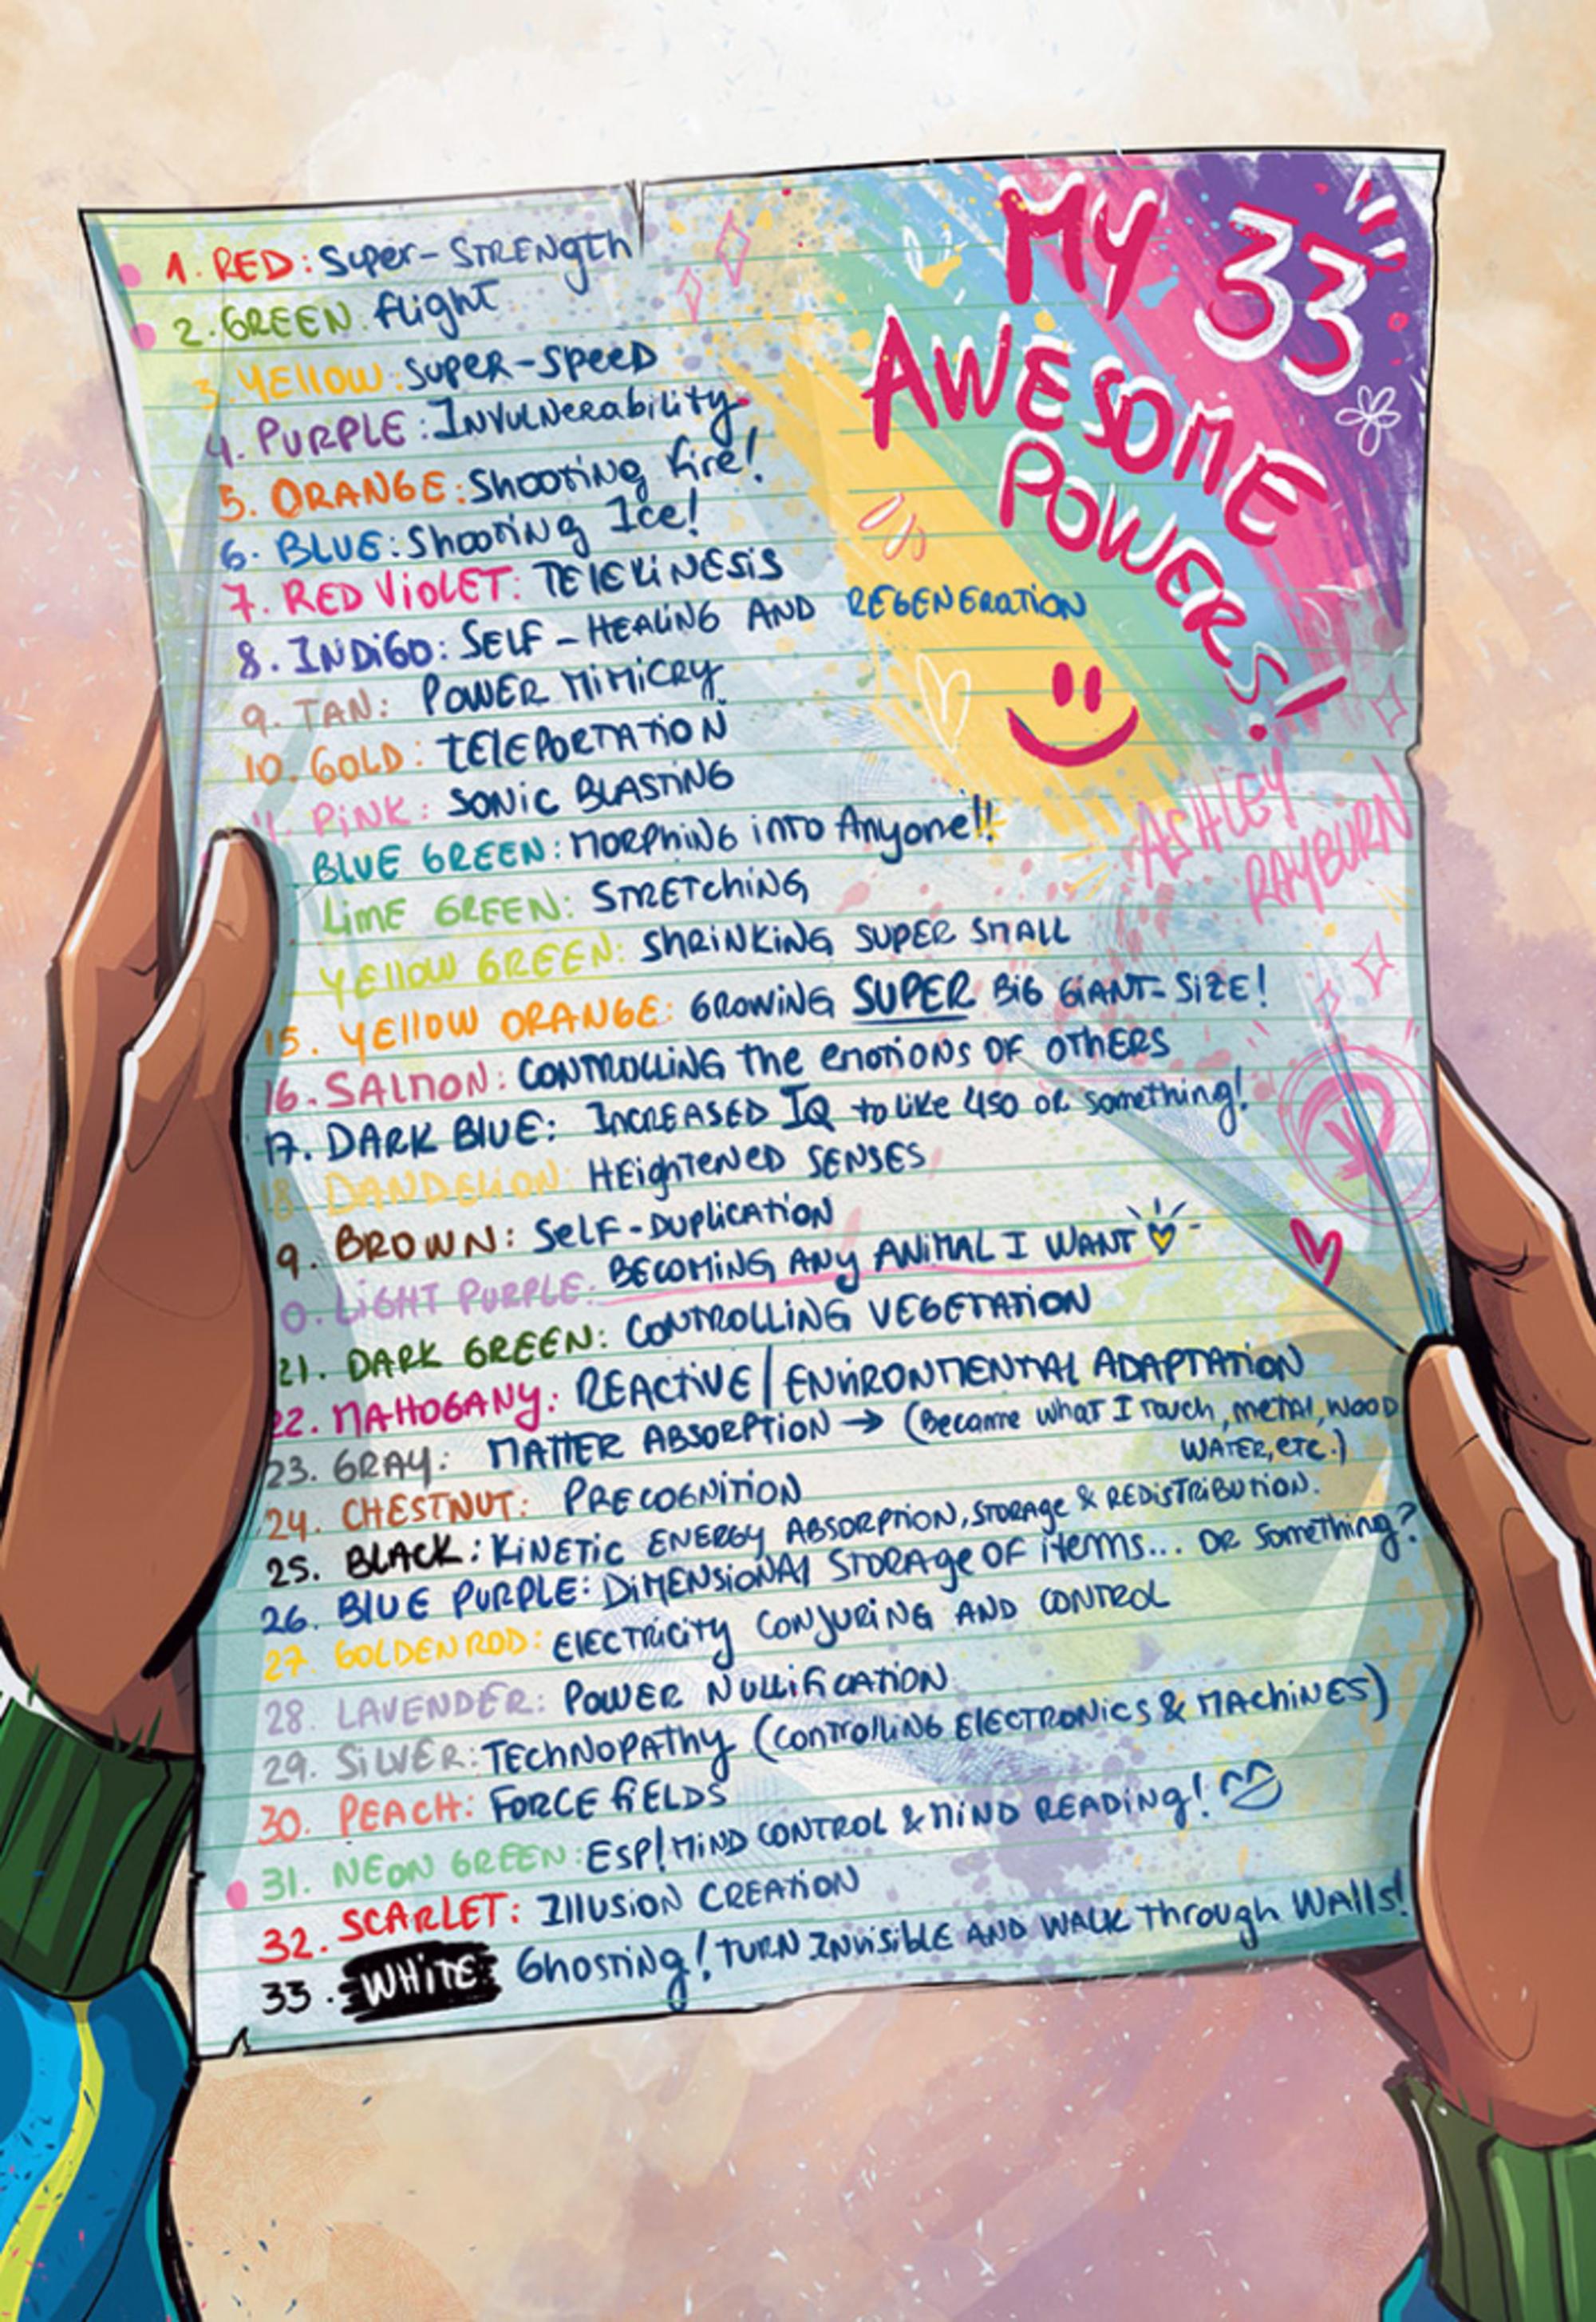 MY 33
AWESOME
POWERS!
ASHLEY
RAYBURN
1. RED: Super-STRENgth
2. GREEN: flight
3. YEllOW: SUPER-SpeeD
4. PURPLE: INVULNerability
5. ORANGE: Shooting fire!
6. BLUE: Shooting Ice!
7. RED ViOLET: TELEKiNESiS
8. INDiGO: SELF-HEALiNG AND REGENERATION
9. TAN: POWER MiMiCRY
10. GOLD: TELEPORTATiON
11. PiNK: SONiC BLASTiNG
BLUE GREEN: MORPhiNG iNTO Anyone!!
LiME GREEN: STRETChiNG
YEllOW GREEN: ShRiNKiNG SUPER SMALL
15. YEllOW ORANGE: GROWiNG SUPER BiG GiANT-SiZE!
16. SALMON: CONTROLLiNG the emotiONS OF OThERS
17. DARK BlUE: INCREASED IQ to like 450 or something!
18 DANDELiON: HEighTENeD SENSES
9. BROWN: SelF-DuplicATiON
0. LiGHT PURPLE: BECOMiNG ANy ANiMAL I WANT
21. DARK GREEN: CONTROLLiNG VEGETATiON
22. MAHOGANY: REACTiVE/ENViRONMENTAL ADAPTATiON
23. GRAY: MATTER ABSORPTiON → (Become what I Touch, metal, WOOD
WATER, eTC.)
24. CHESTNUT: PRECOGNiTiON
25. BLACK: KiNETiC ENERGY ABSORPTiON, STORAge & REDiSTRiBUTiON.
26. BlUE PURPLE: DiMENSiONAl STORAge OF items... OR SomeThing?
27. GOLDENROD: ElECTRiCiTY CONJURiNG AND CONTROL
28. LAVENDER: POWER NULLiFiCATiON
29. SiLVER: TEChNOPAThy (CONTROlliNG ElECTRONiCS & MAChiNES)
30. PEACH: FORCE fiELDS
31. NEON GREEN: ESP! MiND CONTROL & MiND READiNG!
32. SCARLET: IllUSiON CREATiON
33. WHiTE Ghosting! TURN INViSiblE AND WALK Through WAllS!